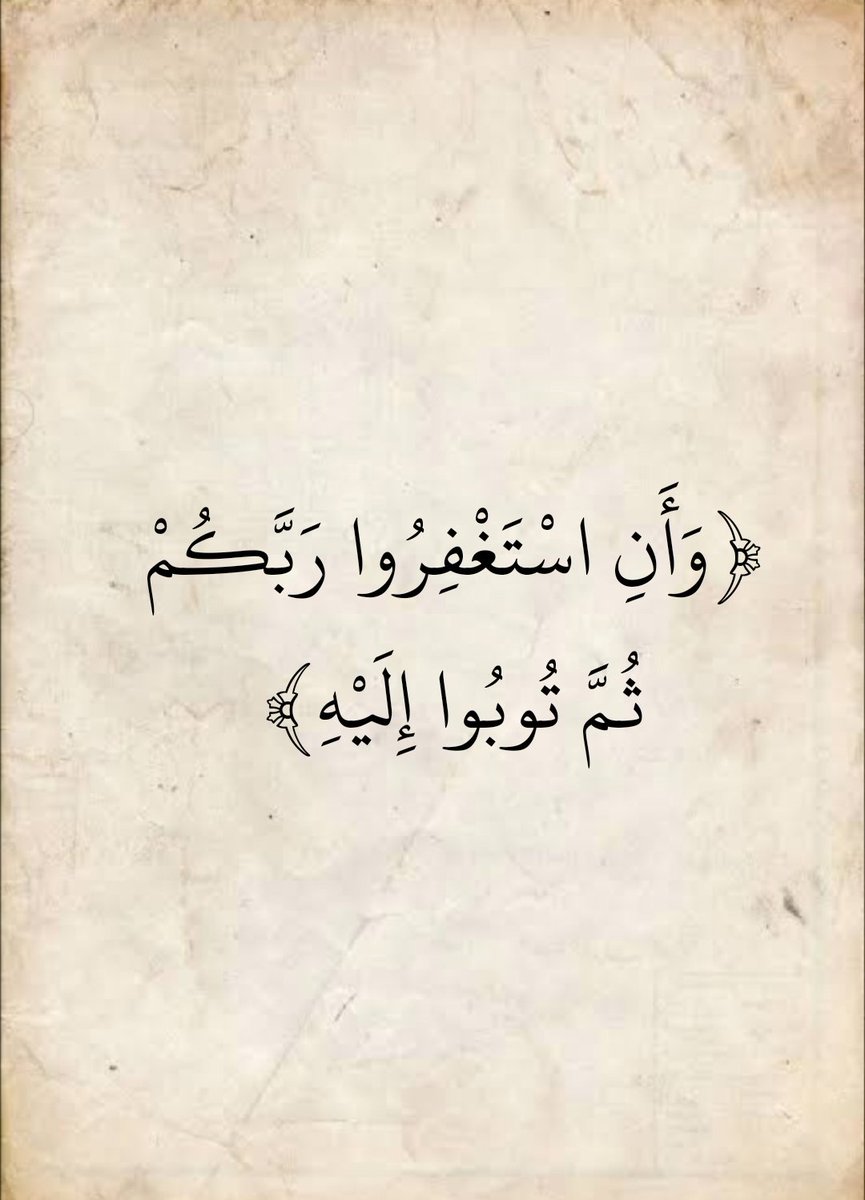 ﴿وَأَنِ اسْتَغْفِرُوا رَبَّكُمْ
ثُمَّ تُوبُوا إِلَيْهِ﴾